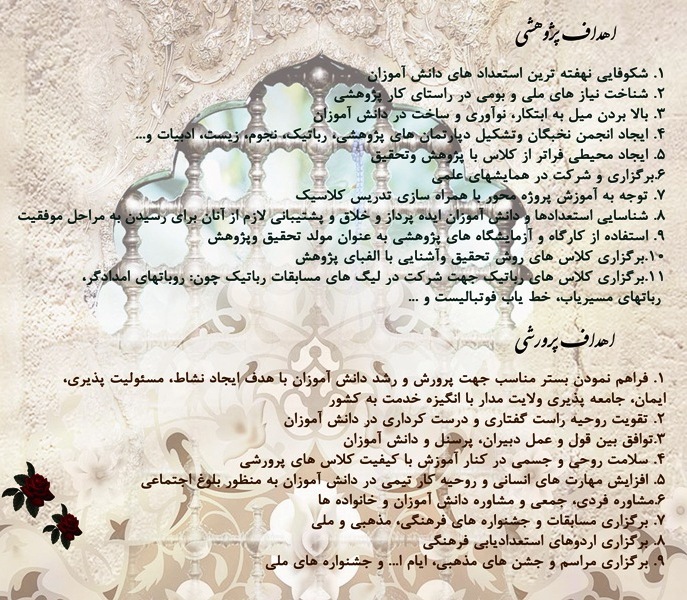 اهداف پژوهشی
۱. شکوفایی نهفته ترین استعداد های دانش آموزان
۲. شناخت نیاز های ملی و بومی در راستای کار پژوهشی
۳. بالا بردن میل به ابتکار، نوآوری و ساخت در دانش آموزان
۴. ایجاد انجمن نخبگان وتشکیل دپارتمان های پژوهشی، رباتیک، نجوم، زیست، ادبیات و...
۵. ایجاد محیطی فراتر از کلاس با پژوهش وتحقیق
۶.برگزاری و شرکت در همایشهای علمی
۷. توجه به آموزش پروژه محور با همراه سازی تدریس کلاسیک
۸. شناسایی استعدادها و دانش آموزان ایده پرداز و خلاق و پشتیبانی لازم از آنان برای رسیدن به مراحل موفقیت
۹. استفاده از کارگاه و آزمایشگاه های پژوهشی به عنوان مولد تحقیق وپژوهش
۱۰.برگزاری کلاس های روش تحقیق وآشنایی با الفبای پژوهش
۱۱.برگزاری کلاس های رباتیک جهت شرکت در لیگ های مسابقات رباتیک چون: روباتهای امدادگر،
رباتهای مسیریاب، خط یاب فوتبالیست و ...
اهداف پرورشی
۱. فراهم نمودن بستر مناسب جهت پرورش و رشد دانش آموزان با هدف ایجاد نشاط، مسئولیت پذیری،
ایمان، جامعه پذیری ولایت مدار با انگیزه خدمت به کشور
۲. تقویت روحیه راست گفتاری و درست کرداری در دانش آموزان
۳.توافق بین قول و عمل دبیران، پرسنل و دانش آموزان
۴. سلامت روحی و جسمی در کنار آموزش با کیفیت کلاس های پرورشی
۵. افزایش مهارت های انسانی و روحیه کار تیمی در دانش آموزان به منظور بلوغ اجتماعی
۶.مشاوره فردی، جمعی و مشاوره دانش آموزان و خانواده ها
۷. برگزاری مسابقات و جشنواره های فرهنگی، مذهبی و ملی
۸. برگزاری اردوهای استعدادیابی فرهنگی
۹. برگزاری مراسم و جشن های مذهبی، ایام ا... و جشنواره های ملی